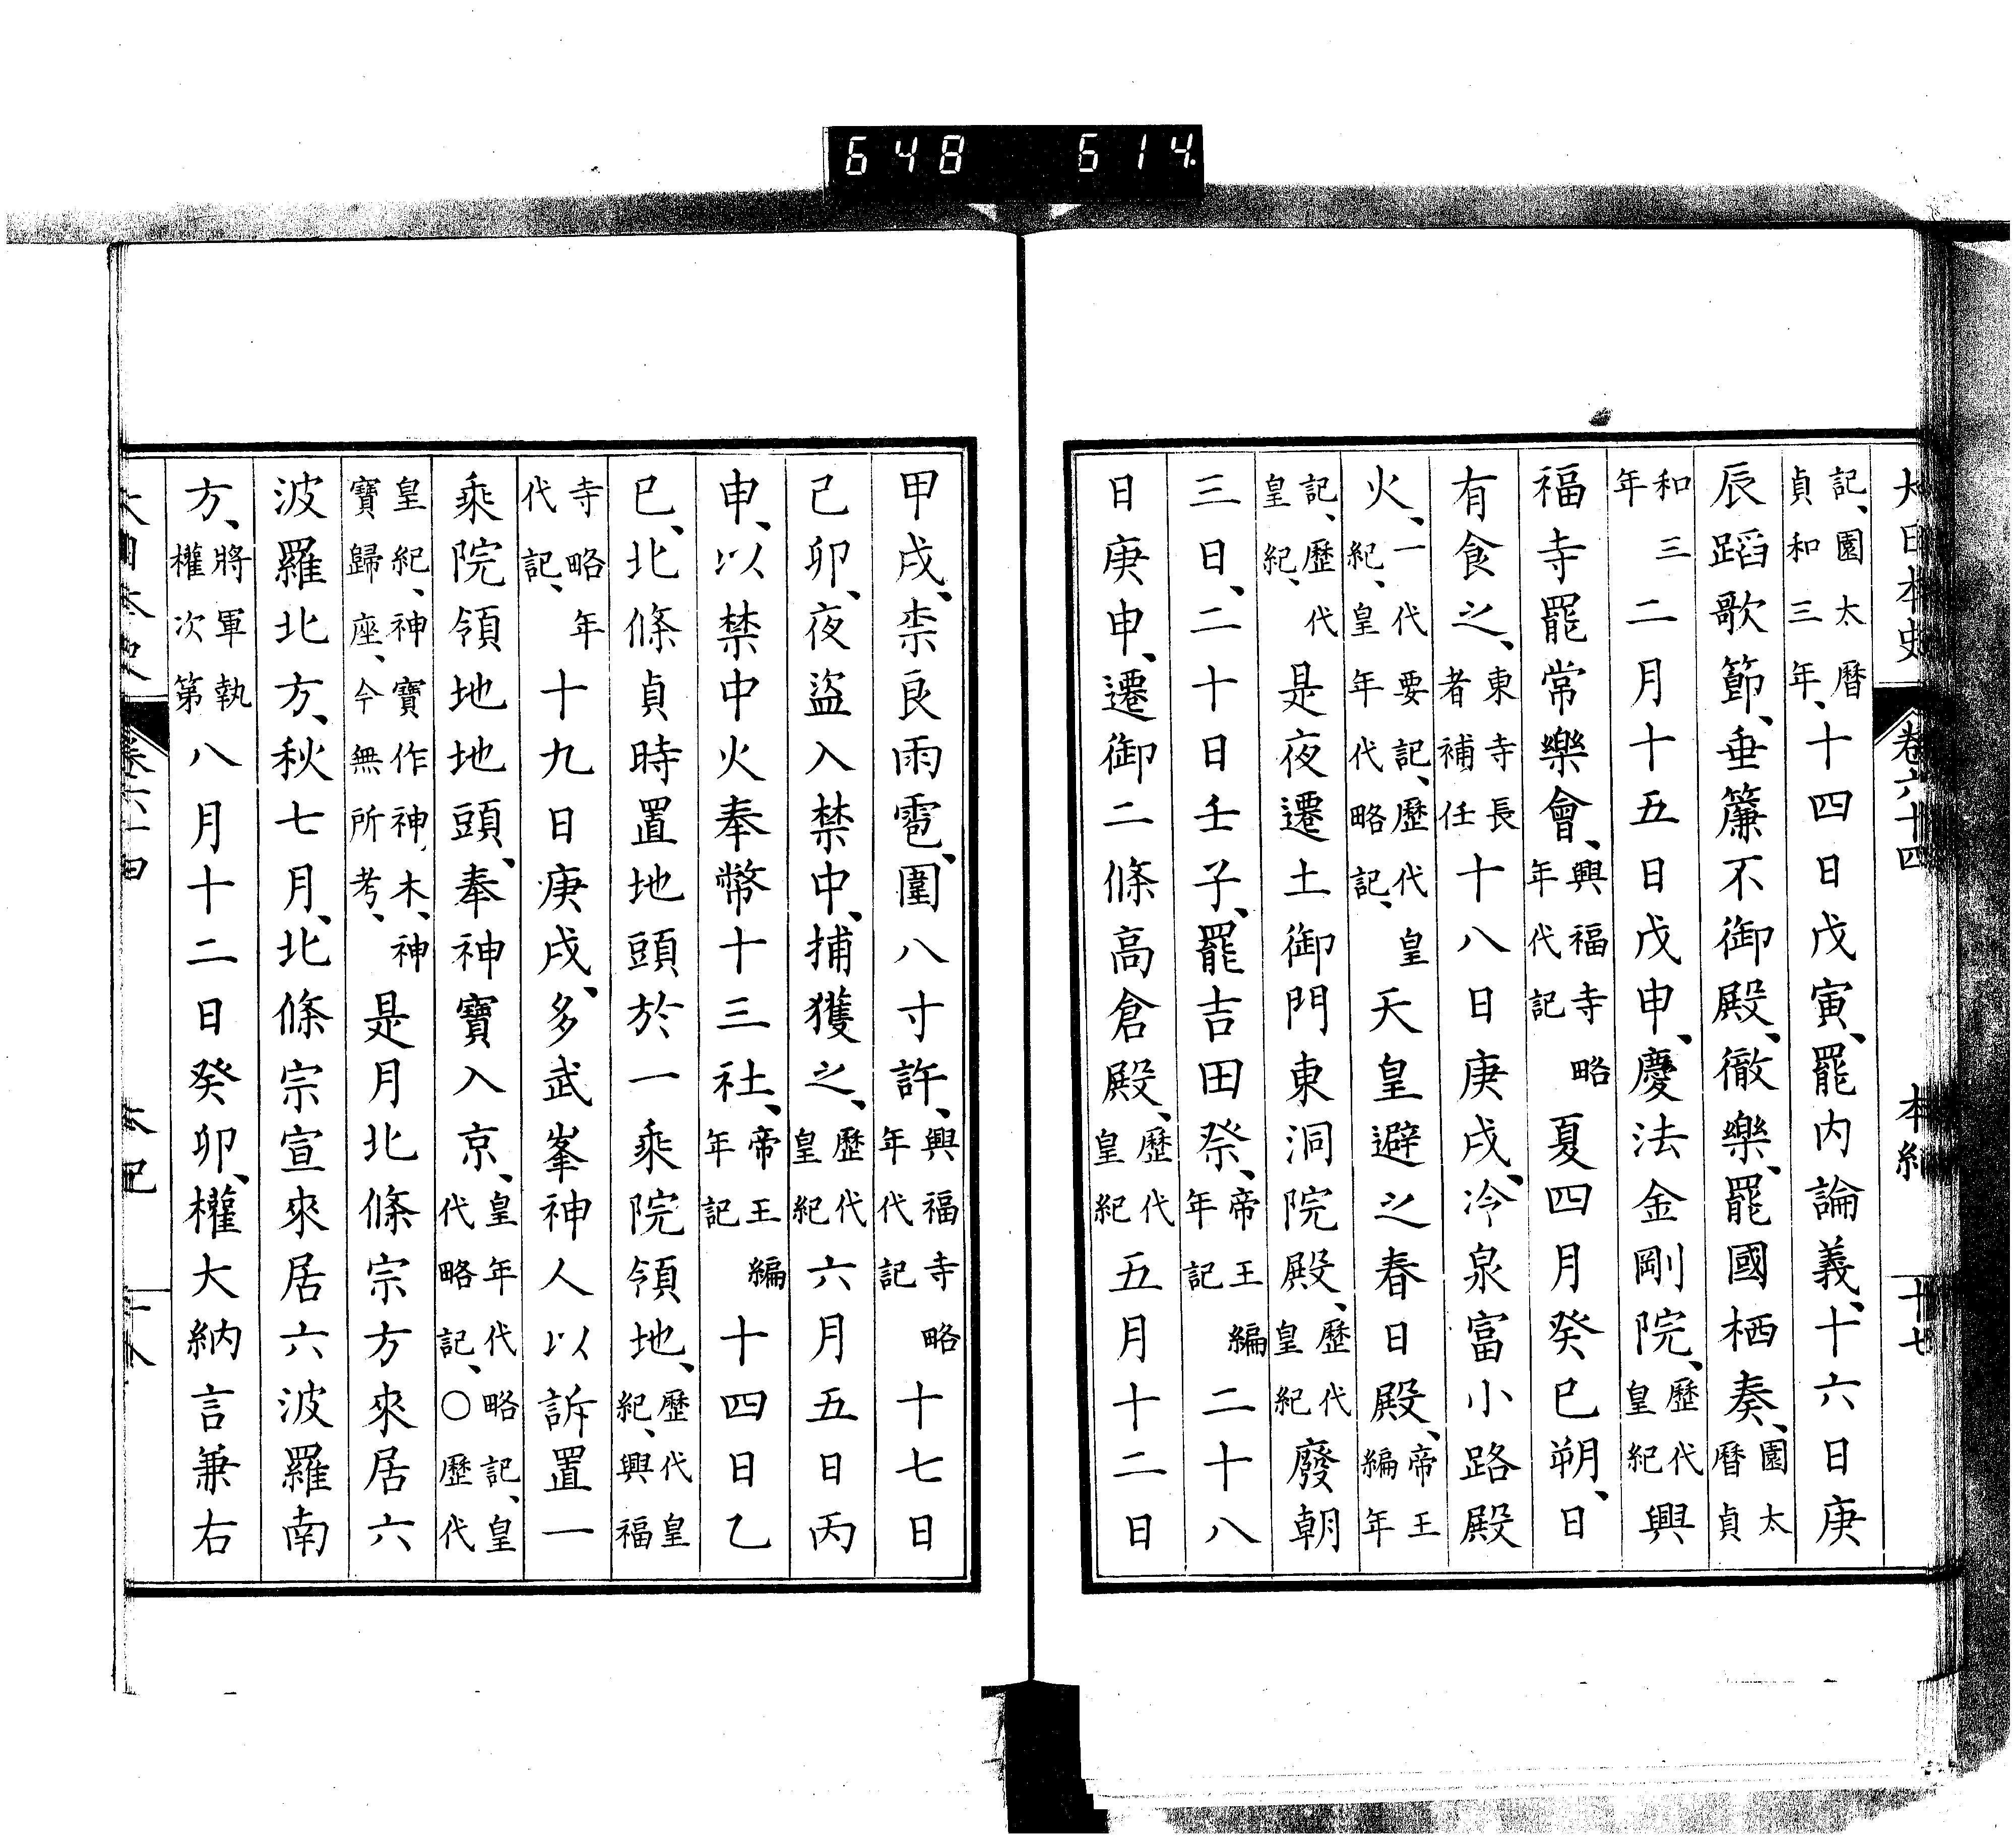 648 614.
大日本史 卷六十四 本紀 十七
記、園太曆貞和三年、十四日戊寅、罷內論義、十六日庚
辰蹈歌節、垂簾不御殿、徹樂、罷國栖奏、園太曆貞
和三年二月十五日戊申、慶法金剛院、歷代皇紀興
福寺罷常樂會、興福寺略年代記夏四月癸巳朔、日
有食之、東寺長者補任十八日庚戌、冷泉富小路殿
火、一代要記、歷代皇紀、皇年代略記、天皇避之春日殿、帝王編年
記、歷代皇紀、是夜遷土御門東洞院殿、歷代皇紀廢朝
三日、二十日壬子、罷吉田祭、帝王編年記二十八
日庚申、遷御二條高倉殿、歷代皇紀五月十二日
甲戌、柰良雨雹、圍八寸許、興福寺略年代記十七日
己卯、夜盜入禁中、捕獲之、歷代皇紀六月五日丙
申、以禁中火奉幣十三社、帝王編年記十四日乙
巳、北條貞時置地頭於一乘院領地、歷代皇紀、興福
寺略年代記、十九日庚戌、多武峯神人以訴置一
乘院領地地頭、奉神寶入京、皇年代略記、皇代略記、○歷代
皇紀、神寶作神木、神寶歸座、今無所考、是月北條宗方來居六
波羅北方、秋七月、北條宗宣來居六波羅南
方、將軍執權次第八月十二日癸卯、權大納言兼右
大日本史 卷六十四 本紀 十八